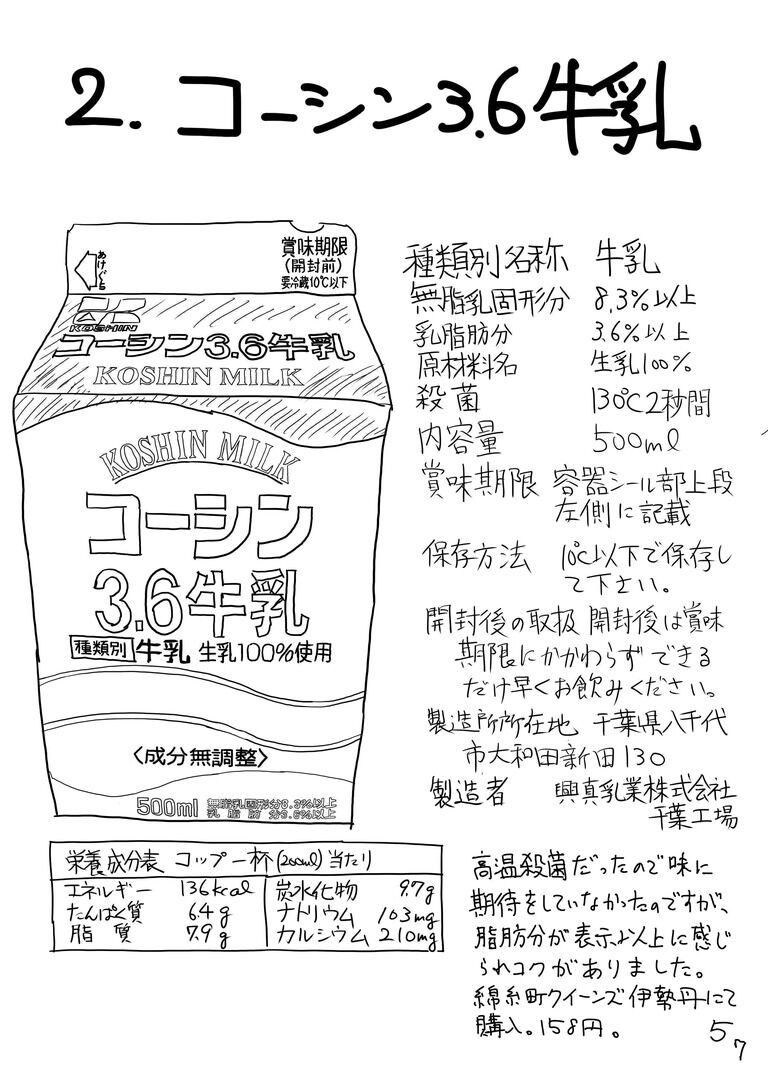 2. コーシン3.6牛乳
あけぐち
賞味期限
(開封前)
要冷蔵10℃以下
KOSHIN
コーシン3.6牛乳
KOSHIN MILK
KOSHIN MILK
コーシン
3.6牛乳
種類別 牛乳 生乳100%使用
〈成分無調整〉
500ml 無脂乳固形分8.3%以上
乳脂肪分3.6%以上
種類別名称 牛乳
無脂乳固形分 8.3%以上
乳脂肪分 3.6%以上
原材料名 生乳100%
殺菌 130℃2秒間
内容量 500ml
賞味期限 容器シール部上段
左側に記載
保存方法 10℃以下で保存し
て下さい。
開封後の取扱 開封後は賞味
期限にかかわらずできる
だけ早くお飲みください。
製造所所在地 千葉県八千代
市大和田新田130
製造者 興真乳業株式会社
千葉工場
栄養成分表 コップ一杯(200ml)当たり
エネルギー 136kcal 炭水化物 9.7g
たんぱく質 6.4g ナトリウム 103mg
脂質 7.9g カルシウム 210mg
高温殺菌だったので味に
期待をしていなかったのですが、
脂肪分が表示以上に感じ
られコクがありました。
綿糸町クイーンズ伊勢丹にて
購入。158円。
5
7